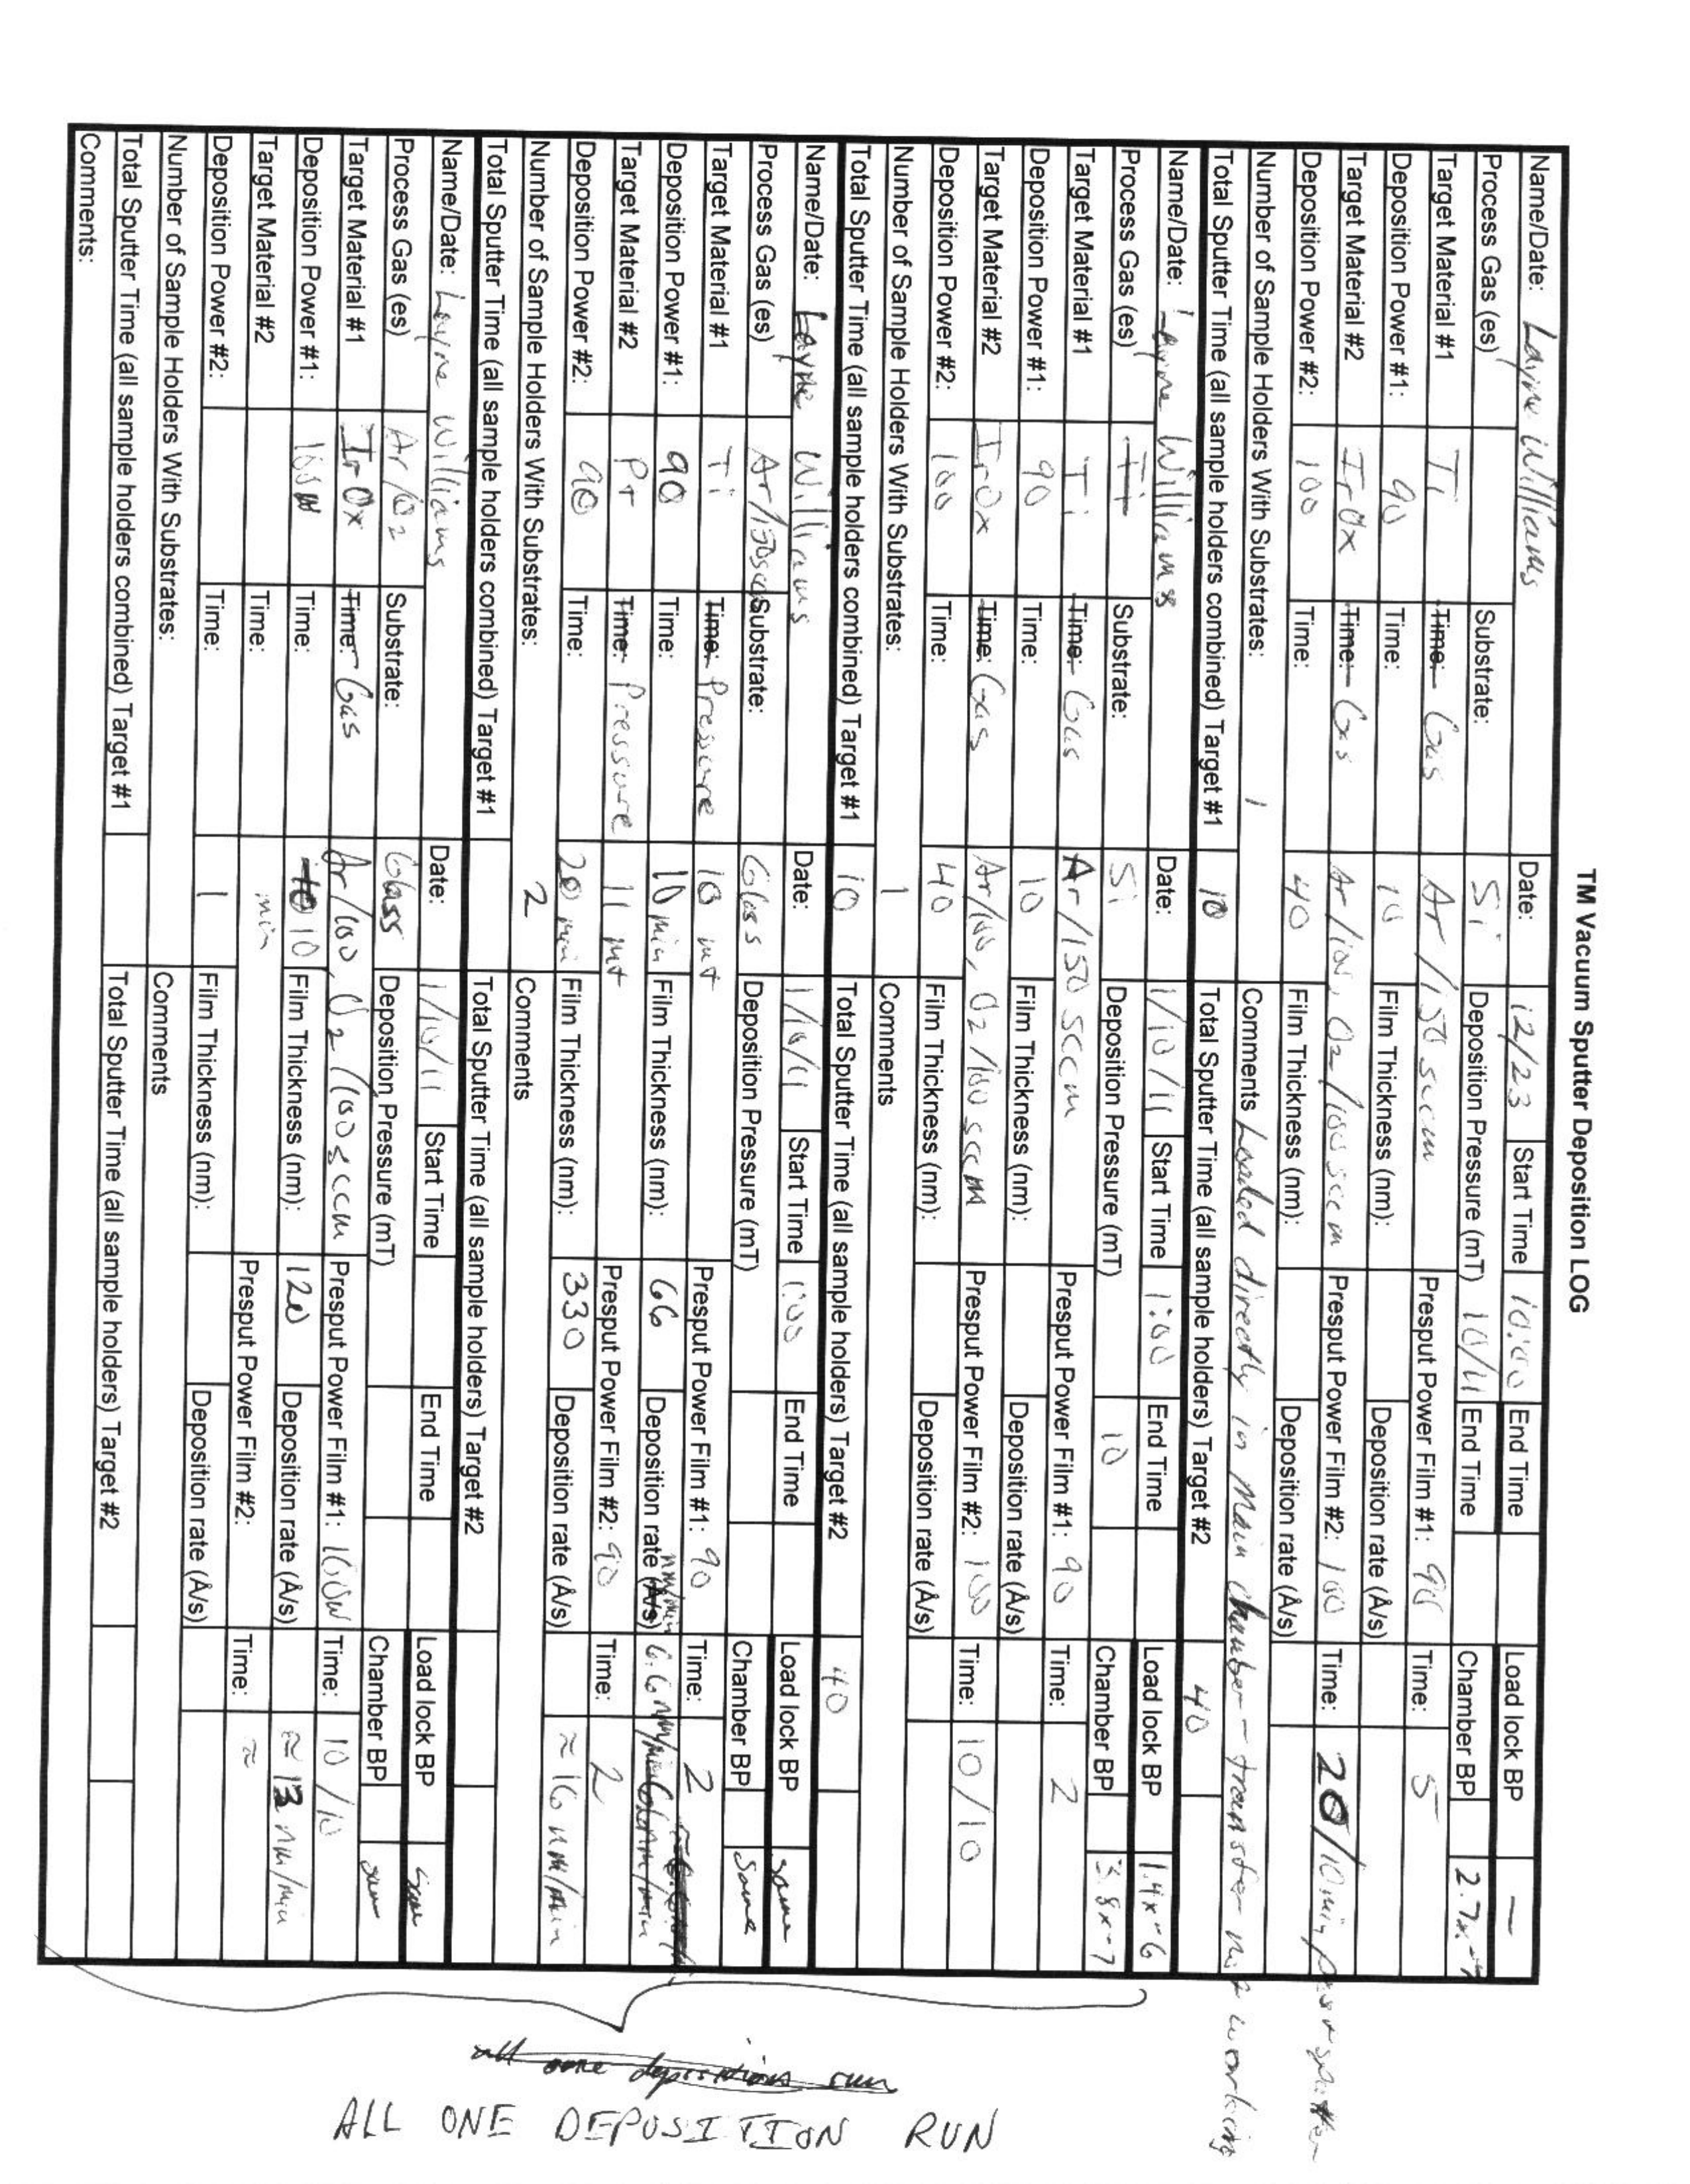 TM Vacuum Sputter Deposition LOG
Name/Date: Layne Williams Date: 12/23 Start Time 10:00 End Time Load lock BP —
Process Gas (es) Substrate: Si Deposition Pressure (mT) 10/11 End Time Chamber BP 2.7x-7
Target Material #1 Ti Time: Gas Ar/150 sccm Presput Power Film #1: 90 Time: 5
Deposition Power #1: 90 Time: 10 Film Thickness (nm): Deposition rate (Å/s)
Target Material #2 IrOx Time: Gas Ar/100, O2/100 sccm Presput Power Film #2: 100 Time: 20/10 min, post sputter
Deposition Power #2: 100 Time: 40 Film Thickness (nm): Deposition rate (Å/s)
Number of Sample Holders With Substrates: 1 Comments Loaded directly in Main chamber - transfer not working
Total Sputter Time (all sample holders combined) Target #1 10 Total Sputter Time (all sample holders) Target #2 40
Name/Date: Layne Williams Date: 1/10/11 Start Time 1:00 End Time Load lock BP 1.4x-6
Process Gas (es) Ti Substrate: Si Deposition Pressure (mT) 10 Chamber BP 3.8x-7
Target Material #1 Ti Time: Gas Ar/150 sccm Presput Power Film #1: 90 Time: 2
Deposition Power #1: 90 Time: 10 Film Thickness (nm): Deposition rate (Å/s)
Target Material #2 IrOx Time: Gas Ar/100, O2/100 sccm Presput Power Film #2: 100 Time: 10/10
Deposition Power #2: 100 Time: 40 Film Thickness (nm): Deposition rate (Å/s)
Number of Sample Holders With Substrates: 1 Comments
Total Sputter Time (all sample holders combined) Target #1 10 Total Sputter Time (all sample holders) Target #2 40
Name/Date: Layne Williams Date: 1/10/11 Start Time 1:00 End Time Load lock BP same
Process Gas (es) Ar/150sccm Substrate: Glass Deposition Pressure (mT) Chamber BP Same
Target Material #1 Ti Time: Pressure 10 mt Presput Power Film #1: 90 Time: 2
Deposition Power #1: 90 Time: 10 min Film Thickness (nm): 66 Deposition rate (Å/s) nm/min 6.6 nm/min
Target Material #2 Pt Time: Pressure 11 mt Presput Power Film #2: 90 Time: 2
Deposition Power #2: 90 Time: 20 min Film Thickness (nm): 330 Deposition rate (Å/s) ≈ 16 nm/min
Number of Sample Holders With Substrates: 2 Comments
Total Sputter Time (all sample holders combined) Target #1 Total Sputter Time (all sample holders) Target #2
Name/Date: Layne Williams Date: 1/10/11 Start Time End Time Load lock BP same
Process Gas (es) Ar/O2 Substrate: Glass Deposition Pressure (mT) Chamber BP same
Target Material #1 IrOx Time: Gas Ar/100, O2/100 sccm Presput Power Film #1: 100W Time: 10/10
Deposition Power #1: 100W Time: 10 10 Film Thickness (nm): 120 Deposition rate (Å/s) ≈ 13 nm/min
Target Material #2 Time: min Presput Power Film #2: Time: ≈
Deposition Power #2: Time: 1 Film Thickness (nm): Deposition rate (Å/s)
Number of Sample Holders With Substrates: Comments
Total Sputter Time (all sample holders combined) Target #1 Total Sputter Time (all sample holders) Target #2
Comments:
all one deposition run
ALL ONE DEPOSITION RUN